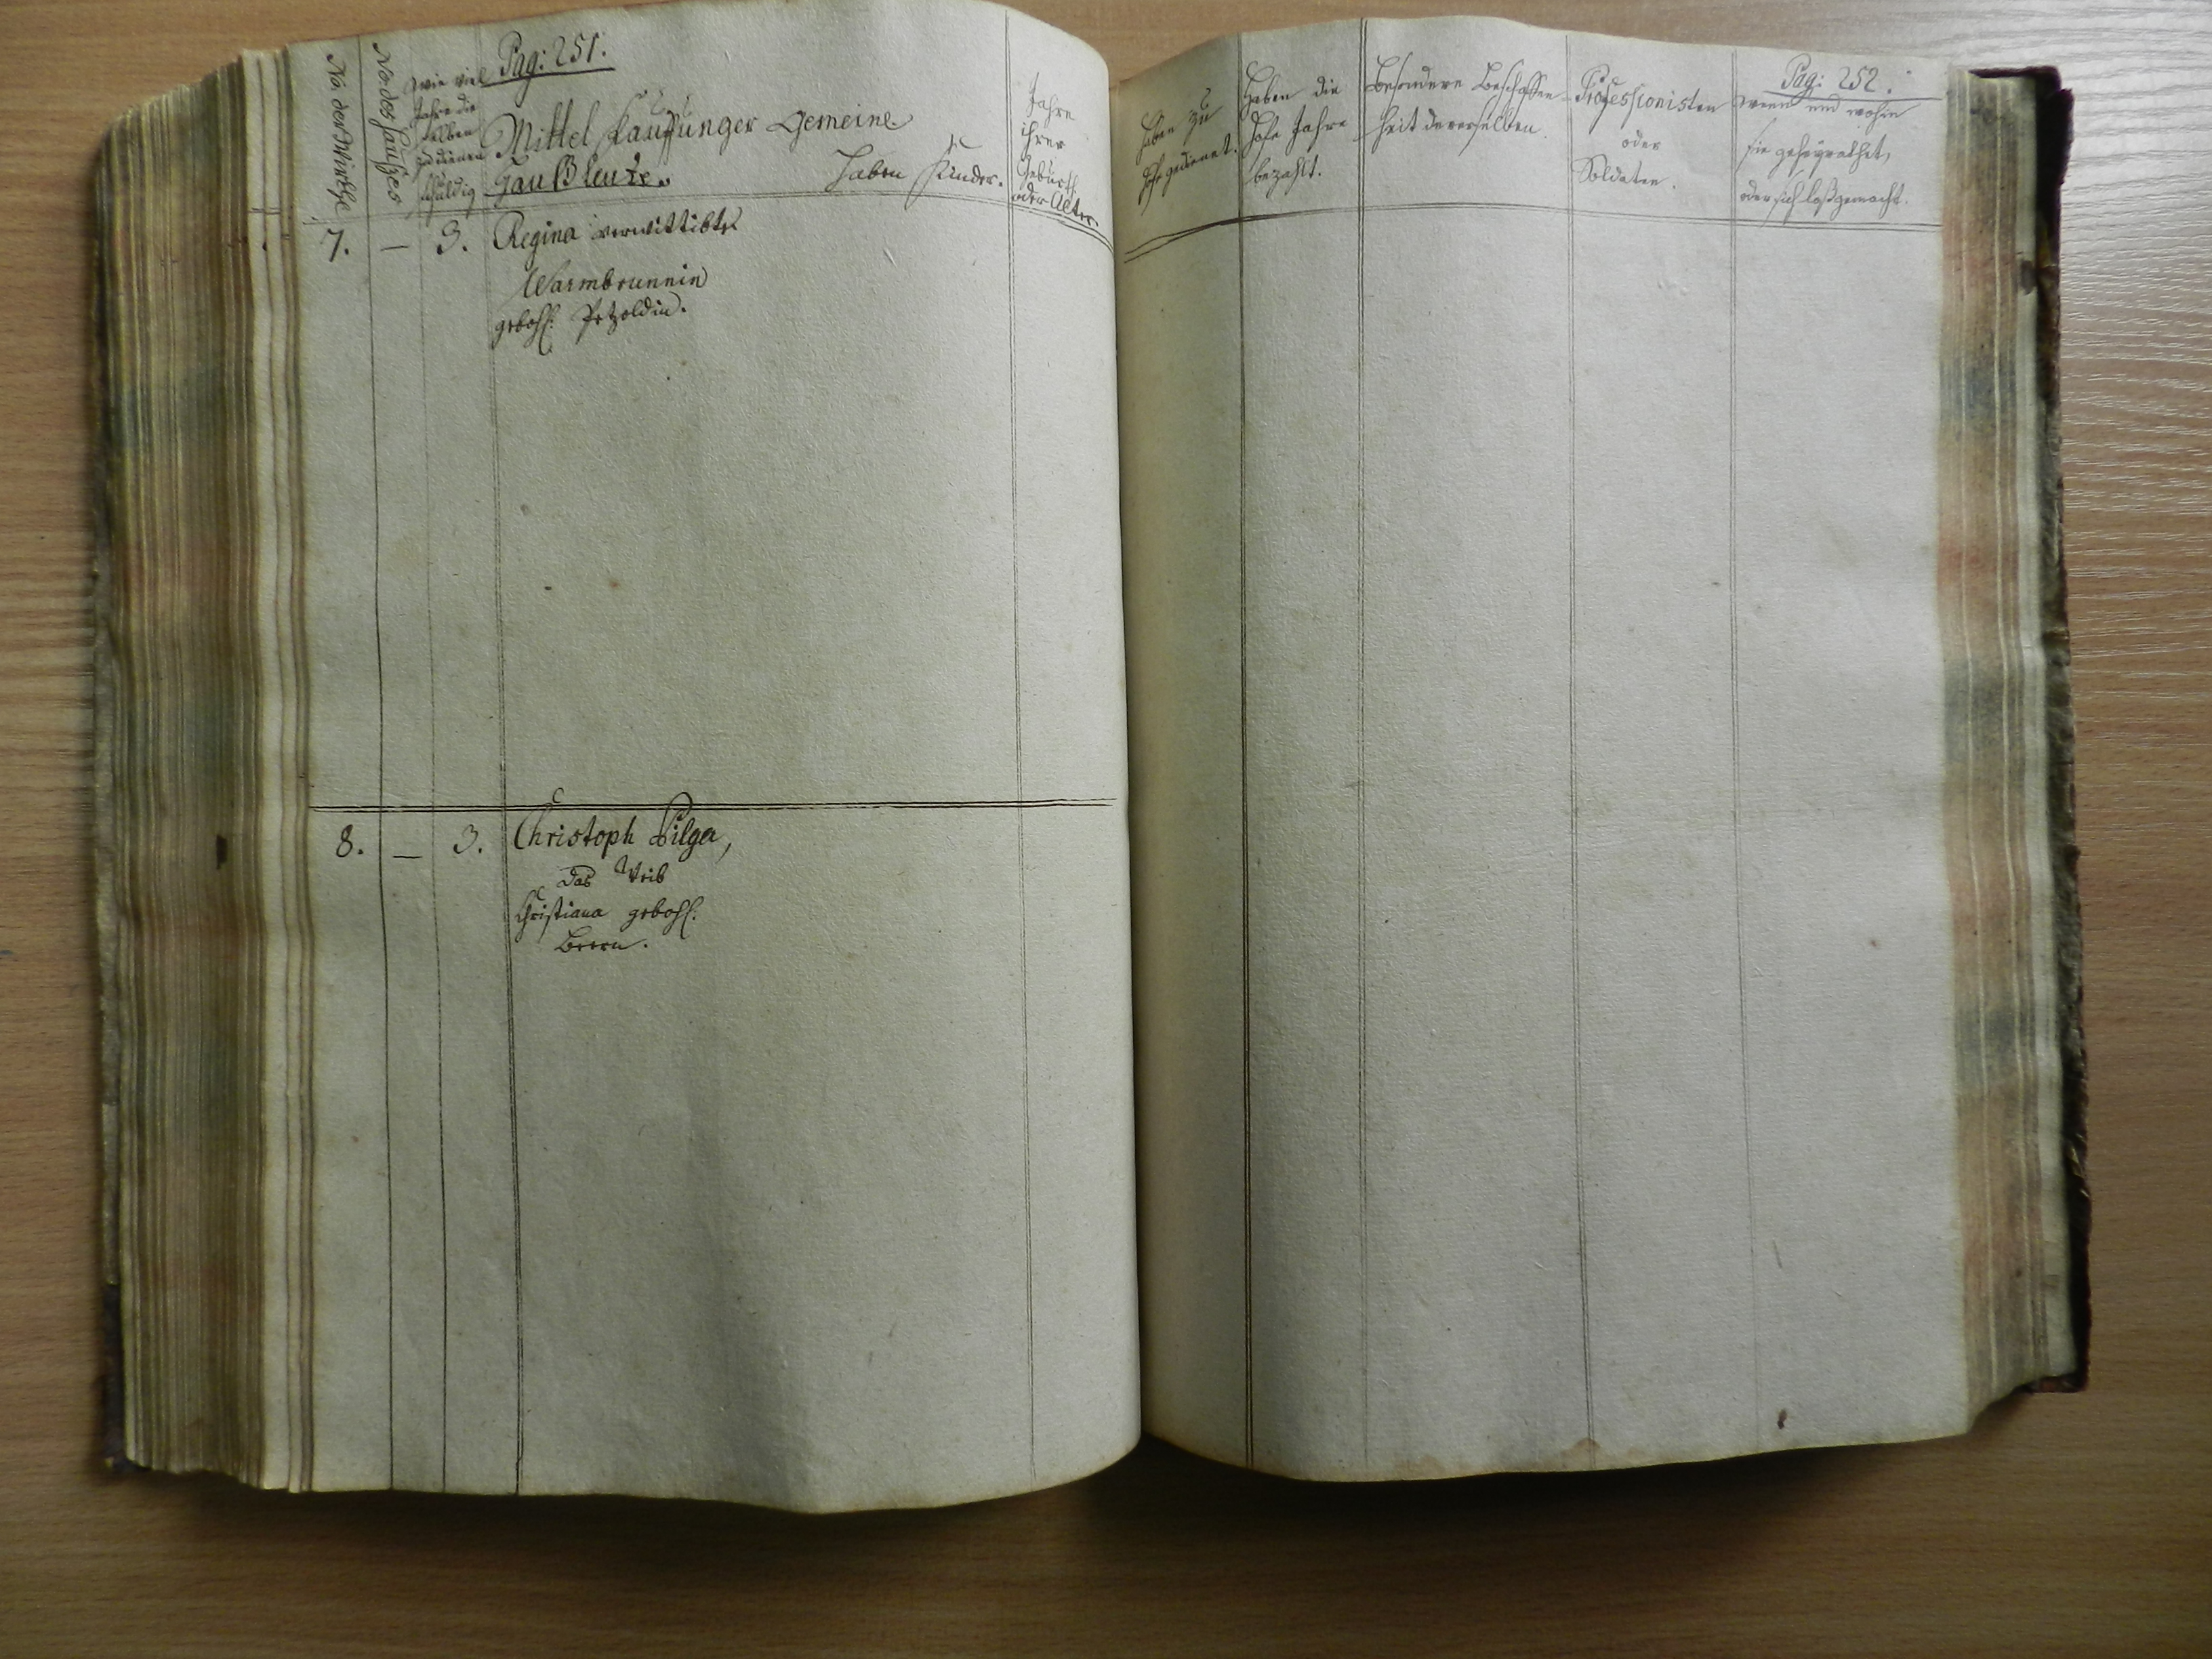 Pag: 251.
No der Wirthe
No. des Haußes
wie viel
Jahre die
selben
zu dienen
schuldig
Mittel Kauffunger Gemeine
Haußleute.
Haben Kinder.
Jahre
ihrer
Geburth
oder Alter.
7. — 3. Regina verwittibte
Warmbrunnin
gebohr. Petzoldin.
8. — 3. Christoph Bilger,
das Weib
Christiana gebohr.
Beern.
Pag: 252.
haben zu
Hofe gedienet.
Haben die
Hofe Jahre
bezahlt.
Besondere Beschaffen-
heit derer selben.
Professionisten
oder
Soldaten.
wenn und wohin
sie geheyrathet,
oder sich loßgemacht.